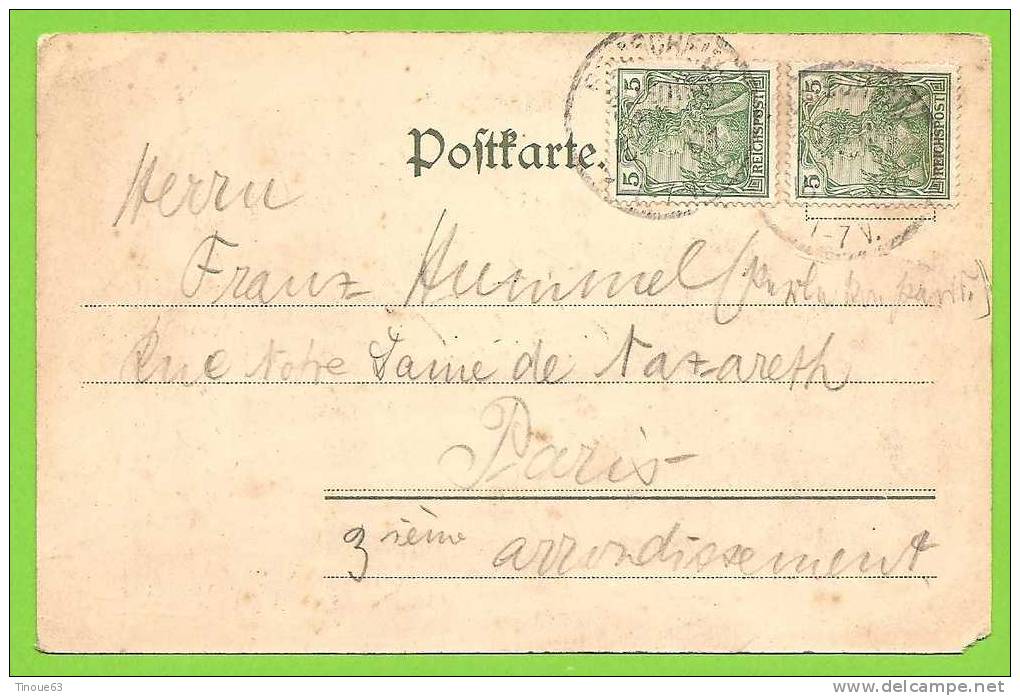 Postkarte.
5 5 REICHSPOST
5 5 REICHSPOST
7-7 V.
Herrn
Franz Hummel
Rue Notre Dame de Nazareth
Paris
3 ième arrondissement
Tinoue63
www.delcampe.net